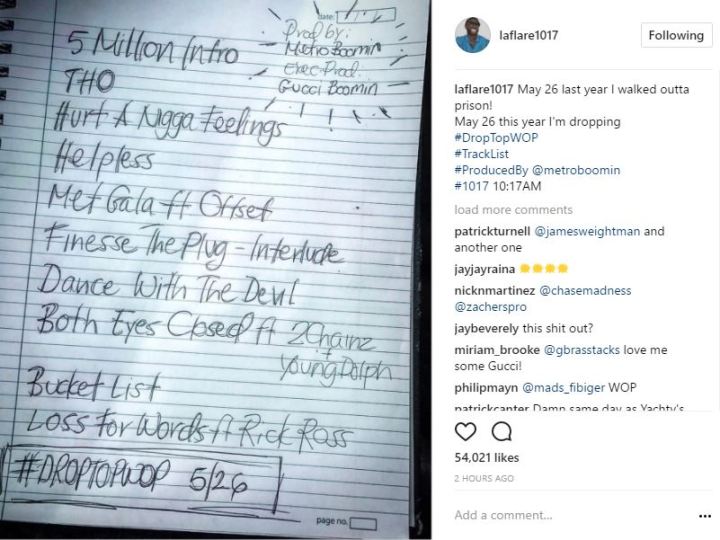 date:
Prod by:
Metro Boomin
Exec Prod.
Gucci Boomin
5 Million Intro
THO
Hurt A Nigga Feelings
Helpless
Met Gala ft Offset
Finesse The Plug - Interlude
Dance With The Devil
Both Eyes Closed ft 2Chainz
+
Young Dolph
Bucket List
Loss For Words ft Rick Ross
#DROPTOPWOP 5/26
page no.
laflare1017
Following
laflare1017 May 26 last year I walked outta
prison!
May 26 this year I'm dropping
#DropTopWOP
#TrackList
#ProducedBy @metroboomin
#1017 10:17AM
load more comments
patrickturnell @jamesweightman and
another one
jayjayraina
nicknmartinez @chasemadness
@zacherspro
jaybeverely this shit out?
miriam_brooke @gbrasstacks love me
some Gucci!
philipmayn @mads_fibiger WOP
patrickcanter Damn same day as Yachty's
54,021 likes
2 HOURS AGO
Add a comment...